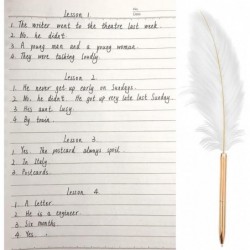 Lesson 1
1. The writer went to the theatre last week.
2. No, he didn't.
3. A young man and a young woman.
4. They were talking loudly.
Lesson 2
1. He never get up early on Sundays.
2. No, he didn't. He got up very late last Sunday.
3. His aunt, Lucy.
4. By train.
Lesson 3
1. Yes. The postcard always spoil
2. In Italy.
3. Postcards.
Lesson 4
1. A letter.
2. He is a engineer.
3. Six months.
4. Yes.